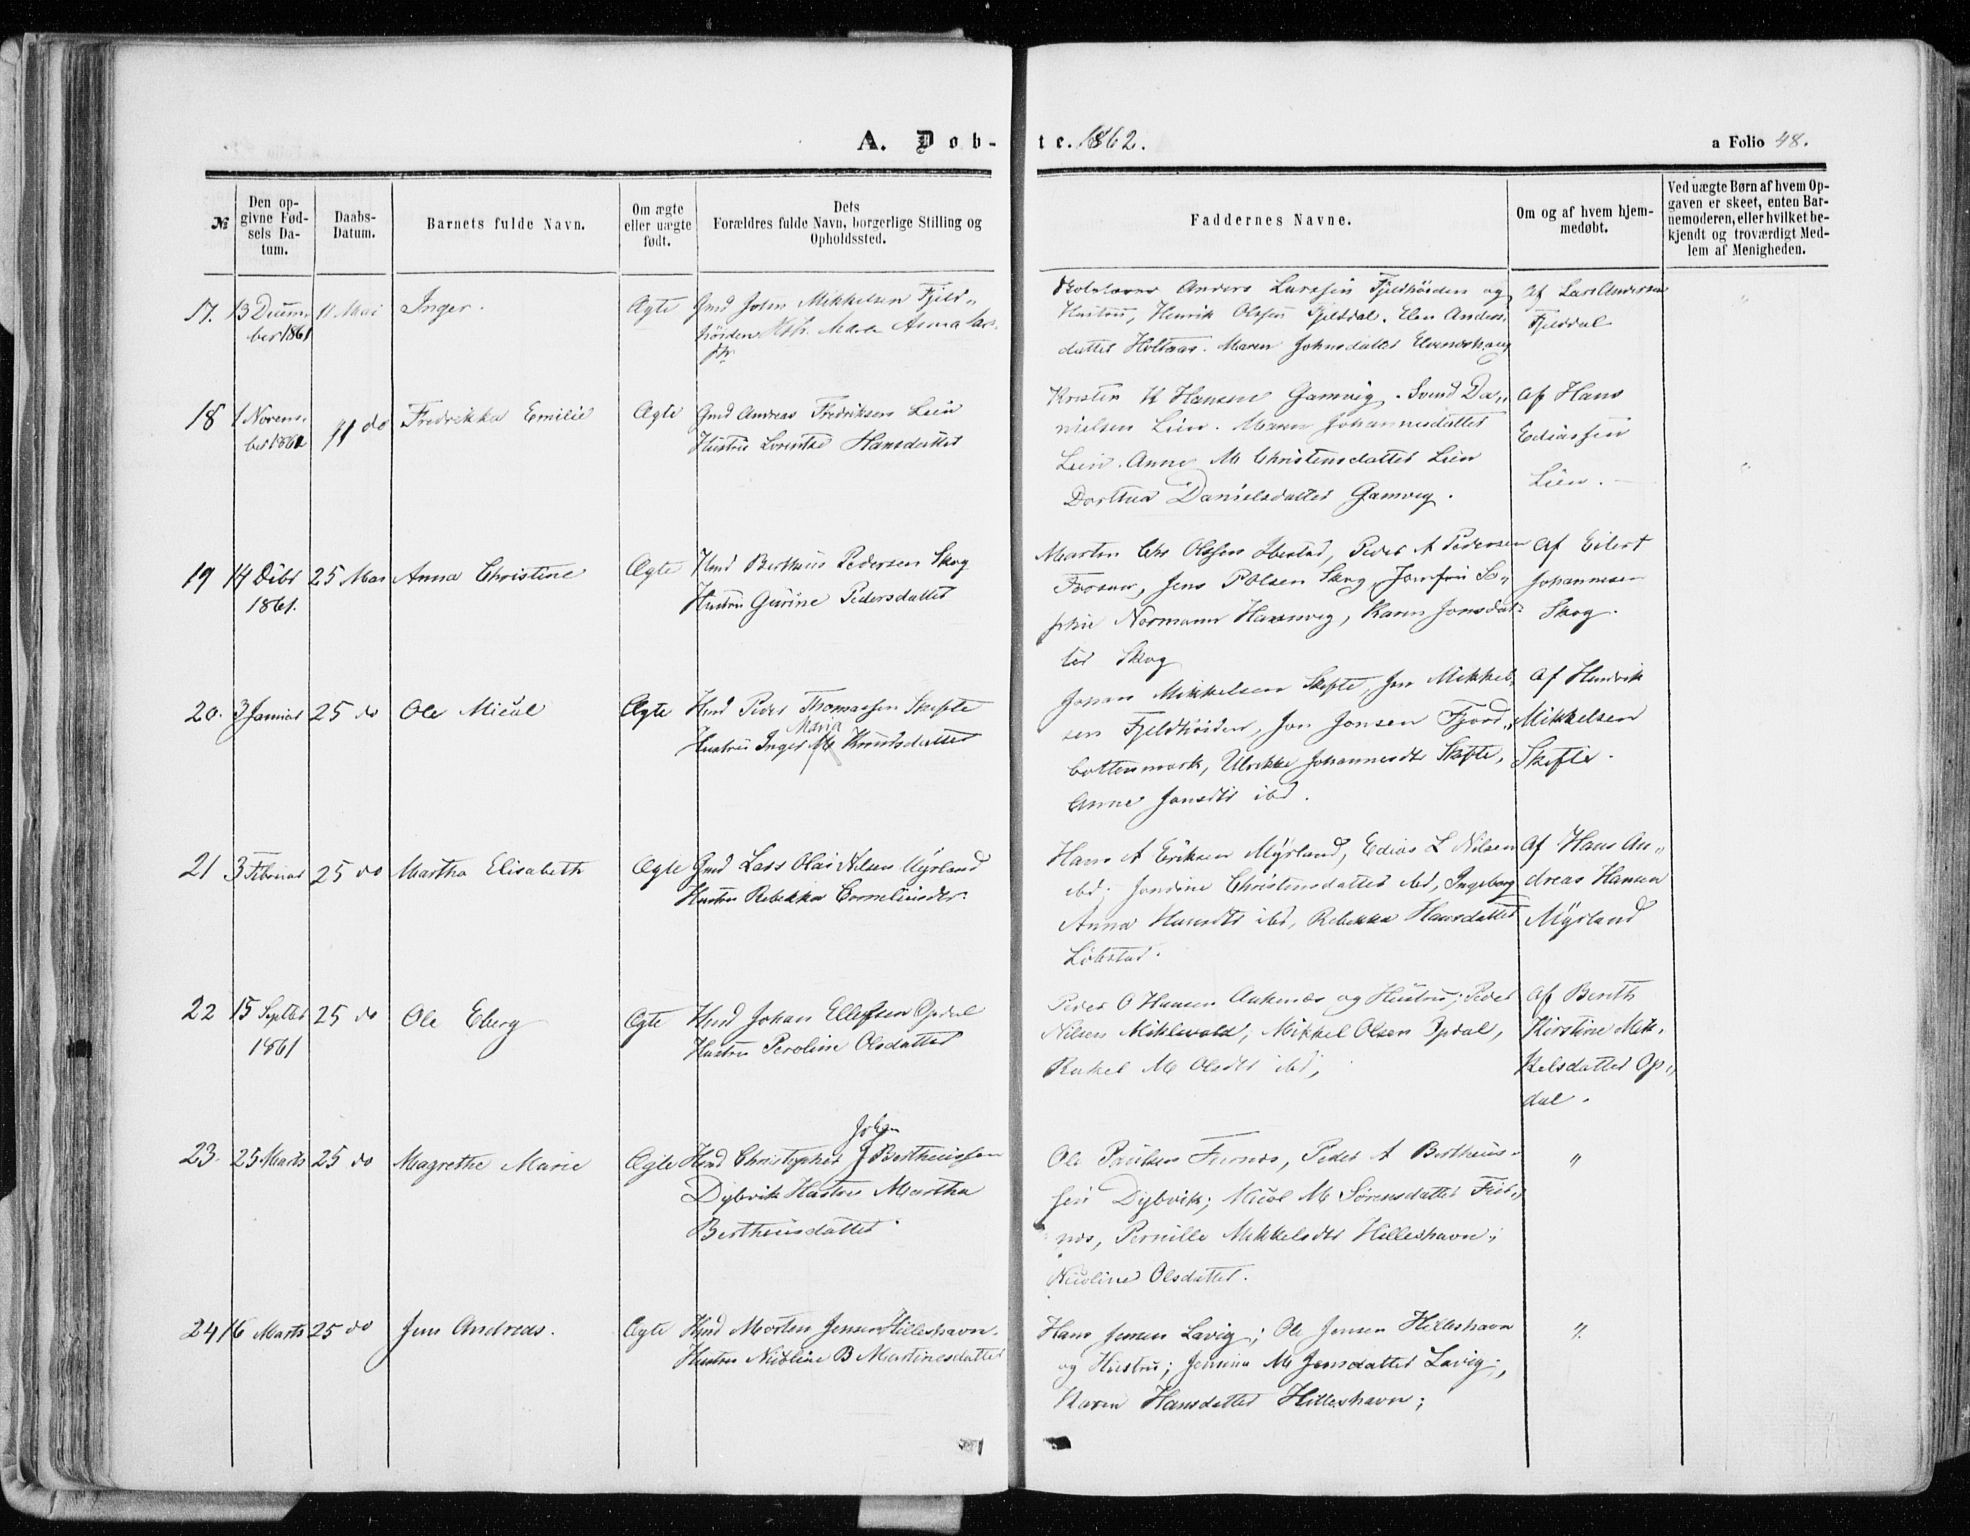 A. Døb-
te. 1862.
a Folio 48.
№
Den op-
givne Fød-
sels Da-
tum.
Daabs-
Datum.
Barnets fulde Navn.
Om ægte
eller uægte
født.
Dets
Forældres fulde Navn, borgerlige Stilling og
Opholdssted.
Faddernes Navne.
Om og af hvem hjem-
medøbt.
Ved uægte Børn af hvem Op-
gaven er skeet, enten Bar-
nemoderen, eller hvilket be-
kjendt og troværdigt Med-
lem af Menigheden.
17. 13 Decem-
ber 1861
11 Mai
Inger.
Ægte
Gmd John Mikkelsen Fjeld-
høiden Anna Lars-
Anders Larssen Fjeldhøiden og
Hustru, Henrik Olsen Fjelddal. Elen Anders-
datter Holtaas. Maren Johnsdatter
Af Lars Andersen
Fjelddal
"
18 1 Novem-
ber 1861
11 do
Fredrikka Emilie
Ægte
Gmd Andreas Fredriksen Lein
Hustru Lorentze Hansdatter
Kristen K Hansen Gamvig. Svend Da-
nielsen Lien. Maren Johannesdatter
Lein. Anne M Christensdatter Lien
Dorthea Danielsdatter Gamvig.
Af Hans
Ediassen
Lien.
"
19 14 Decbr
1861.
25 Mai
Anna Christine
Ægte
Hmd Bertheus Pedersen Skog
Hustru Gurine Pedersdatter
Marten Chr Olsen Ibestad, Peder A Pedersen
Forsaa, Jens P Olsen Skog, Jomfru So-
phie Normann Havnvig, Karen Jonsdat-
ter Skog
Af Eilert
Johannesen
Skog.
20. 3 Januar
25 do
Ole Micæl
Ægte
Hmd Peder Thomassen Skefte
Maria
Hustru Inger M Knutsdatter
Johan Mikkelsen Skefte, Jon Mikkel-
sen Fjeldhøiden, Jon Jonsen Fjord-
bottenmark, Ulrikke Johannesdtr Skefte,
Anne Jonsdtr ibd.
Af Hendrik
Mikkelsen
Skefte.
21 3 Februar
25 do
Martha Elisabeth
Ægte
Gmd Lars Olai Nilsen Myrland
Hustru Rebekka Corneliusdtr.
Hans A Eriksen Myrland, Edias L Nilsen
ibd. Jondine Christensdatter ibd, Ingeborg
Anna Hansdtr ibd, Rebekka Hansdatter
Løbstad.
Af Hans An-
dreas Hansen
Myrland
22 15 Septbr
1861
25 do
Ole Eberg
Ægte
Hmd Johan Ellefsen Opdal
Hustru Peroline Olsdatter
Peder O Hansen Aakenes og Hustru; Peder
Nilsen Miklevold, Mikkel Olsen Opdal,
Rakel M Olsdtr ibd;
Af Berith
Kirstine Mik-
kelsdatter Op-
dal.
23. 25 Marts
25 do
Magrethe Marie
Ægte
Johan
Hmd Christopher J Bertheussen
Dybvik Hustru Martha
Bertheusdatter.
Ole Paulsen Furnes, Peder A Bertheus-
sen Dybvik; Nicol M Sørensdatter Fur-
nes, Pernille Mikkelsdtr Hilleshavn;
Nicoline Olsdatter.
"
24 16 Marts
25 do
Jens Andreas.
Ægte
Hmd Morten Jensen Hilleshavn.
Hustru Nicoline B Martinesdatter
Hans Jensen Lavig; Ole Jensen Hilleshavn
og Hustru; Jensina M Jensdatter Lavig;
Karen Hansdatter Hilleshavn;
"